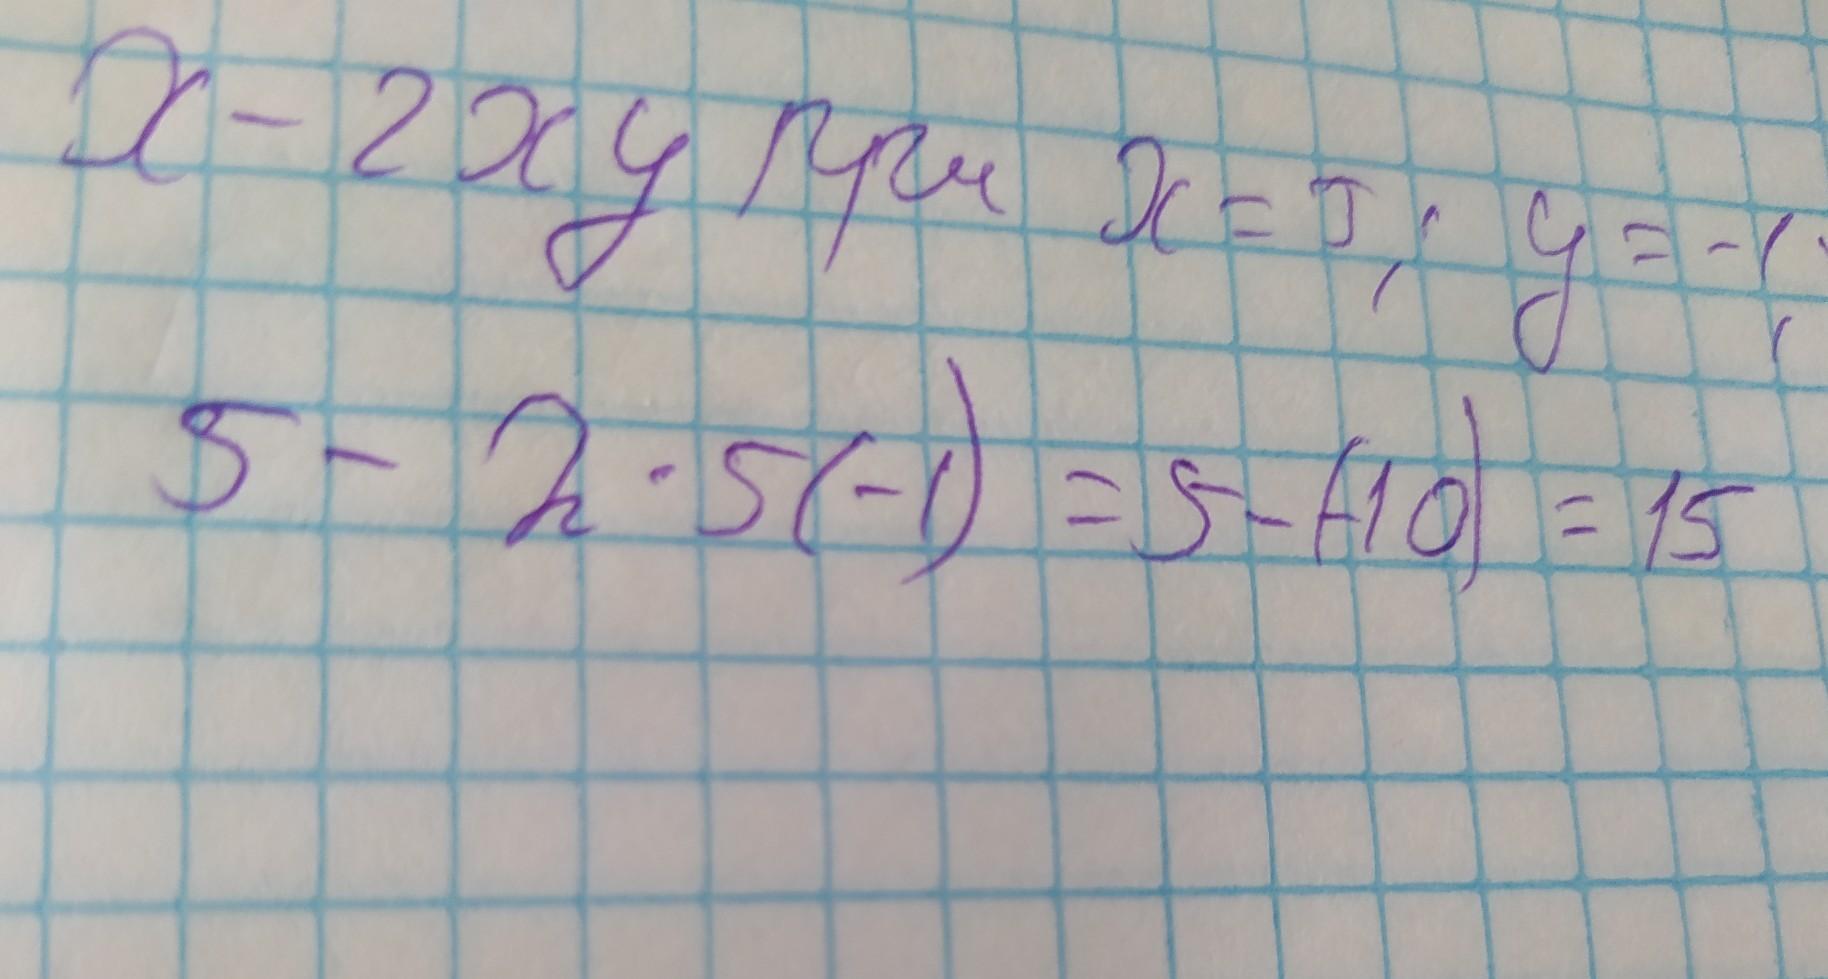 x - 2xy при x = 5, y = -1
5 - 2 · 5(-1) = 5 - (-10) = 15